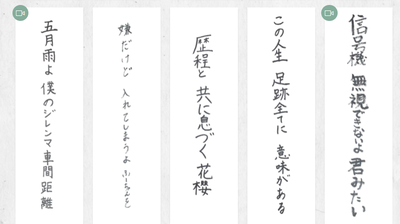 信号機 無視できないよ 君みたい
この人生 足跡全てに 意味がある
歴程と 共に息づく 花櫻
嫌だけど 入れてしまうよ
五月雨よ 僕のジレンマ 車間距離